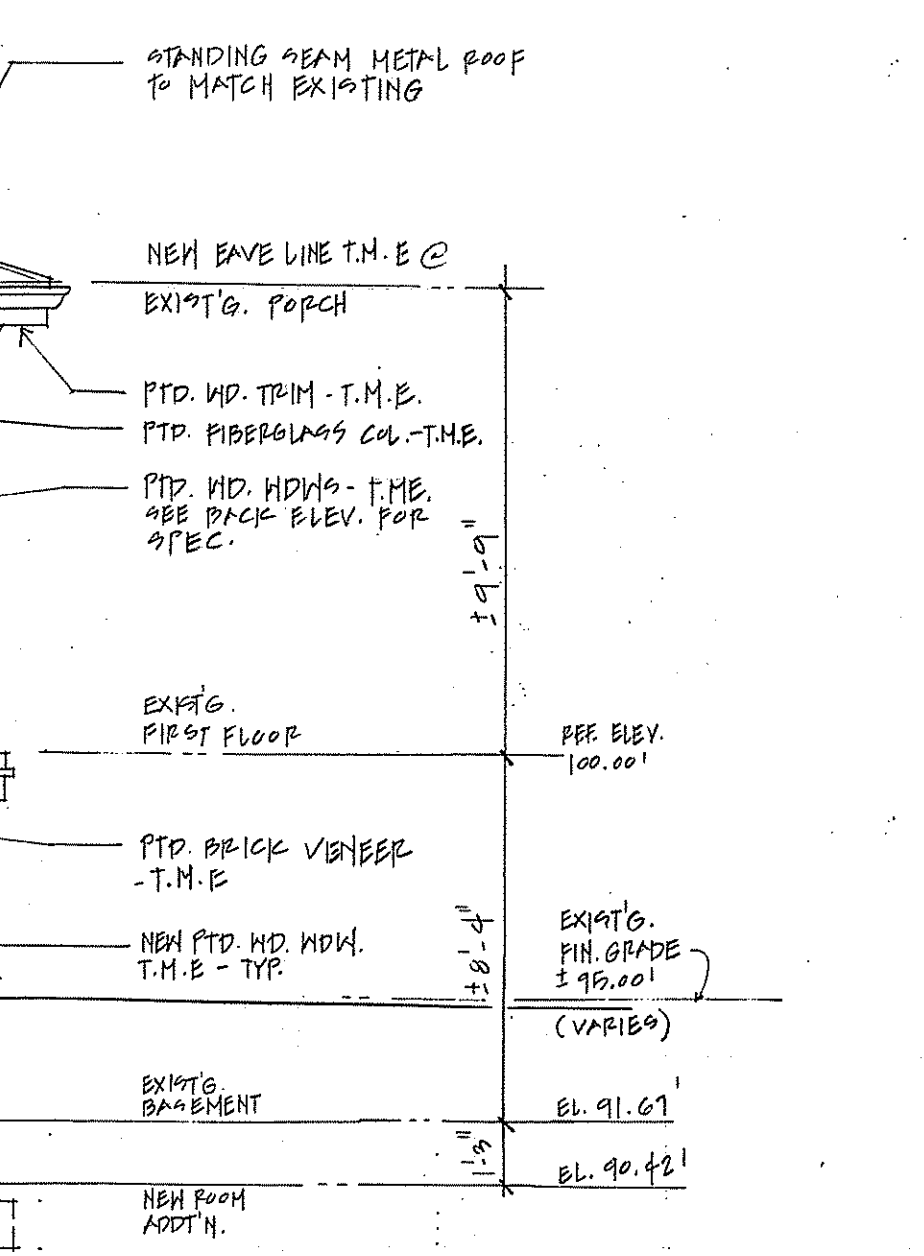 STANDING SEAM METAL ROOF
TO MATCH EXISTING
NEW EAVE LINE T.M.E @
EXIST'G. PORCH
PTD. WD. TRIM - T.M.E.
PTD. FIBERGLASS COL.-T.M.E.
PTD. WD. WDWS - T.ME.
SEE BACK ELEV. FOR
SPEC.
±9'-9"
EXIST'G.
FIRST FLOOR
REF. ELEV.
100.00'
PTD. BRICK VENEER
-T.M.E
±8'-4"
EXIST'G.
FIN. GRADE
± 95.00'
(VARIES)
NEW PTD. WD. WDW.
T.M.E - TYP.
EXIST'G.
BASEMENT
EL. 91.67'
1'-3"
EL. 90.42'
NEW ROOM
ADDT'N.